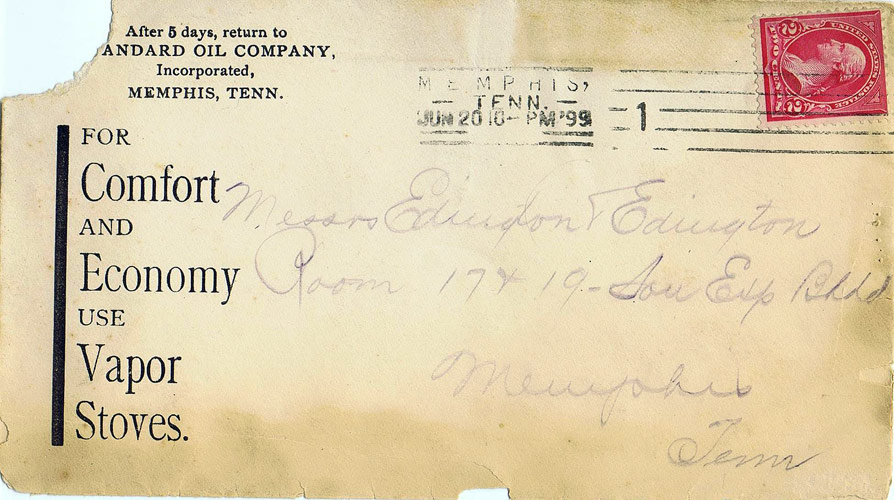 After 5 days, return to
ANDARD OIL COMPANY,
Incorporated,
MEMPHIS, TENN.
FOR
Comfort
AND
Economy
USE
Vapor
Stoves.
MEMPHIS,
TENN.
JUN 20 10- PM '99
1
UNITED STATES POSTAGE
2 2
Messrs Edington & Edington
Room 17 & 19 - Sou Exp Bldd
Memphis
Tenn